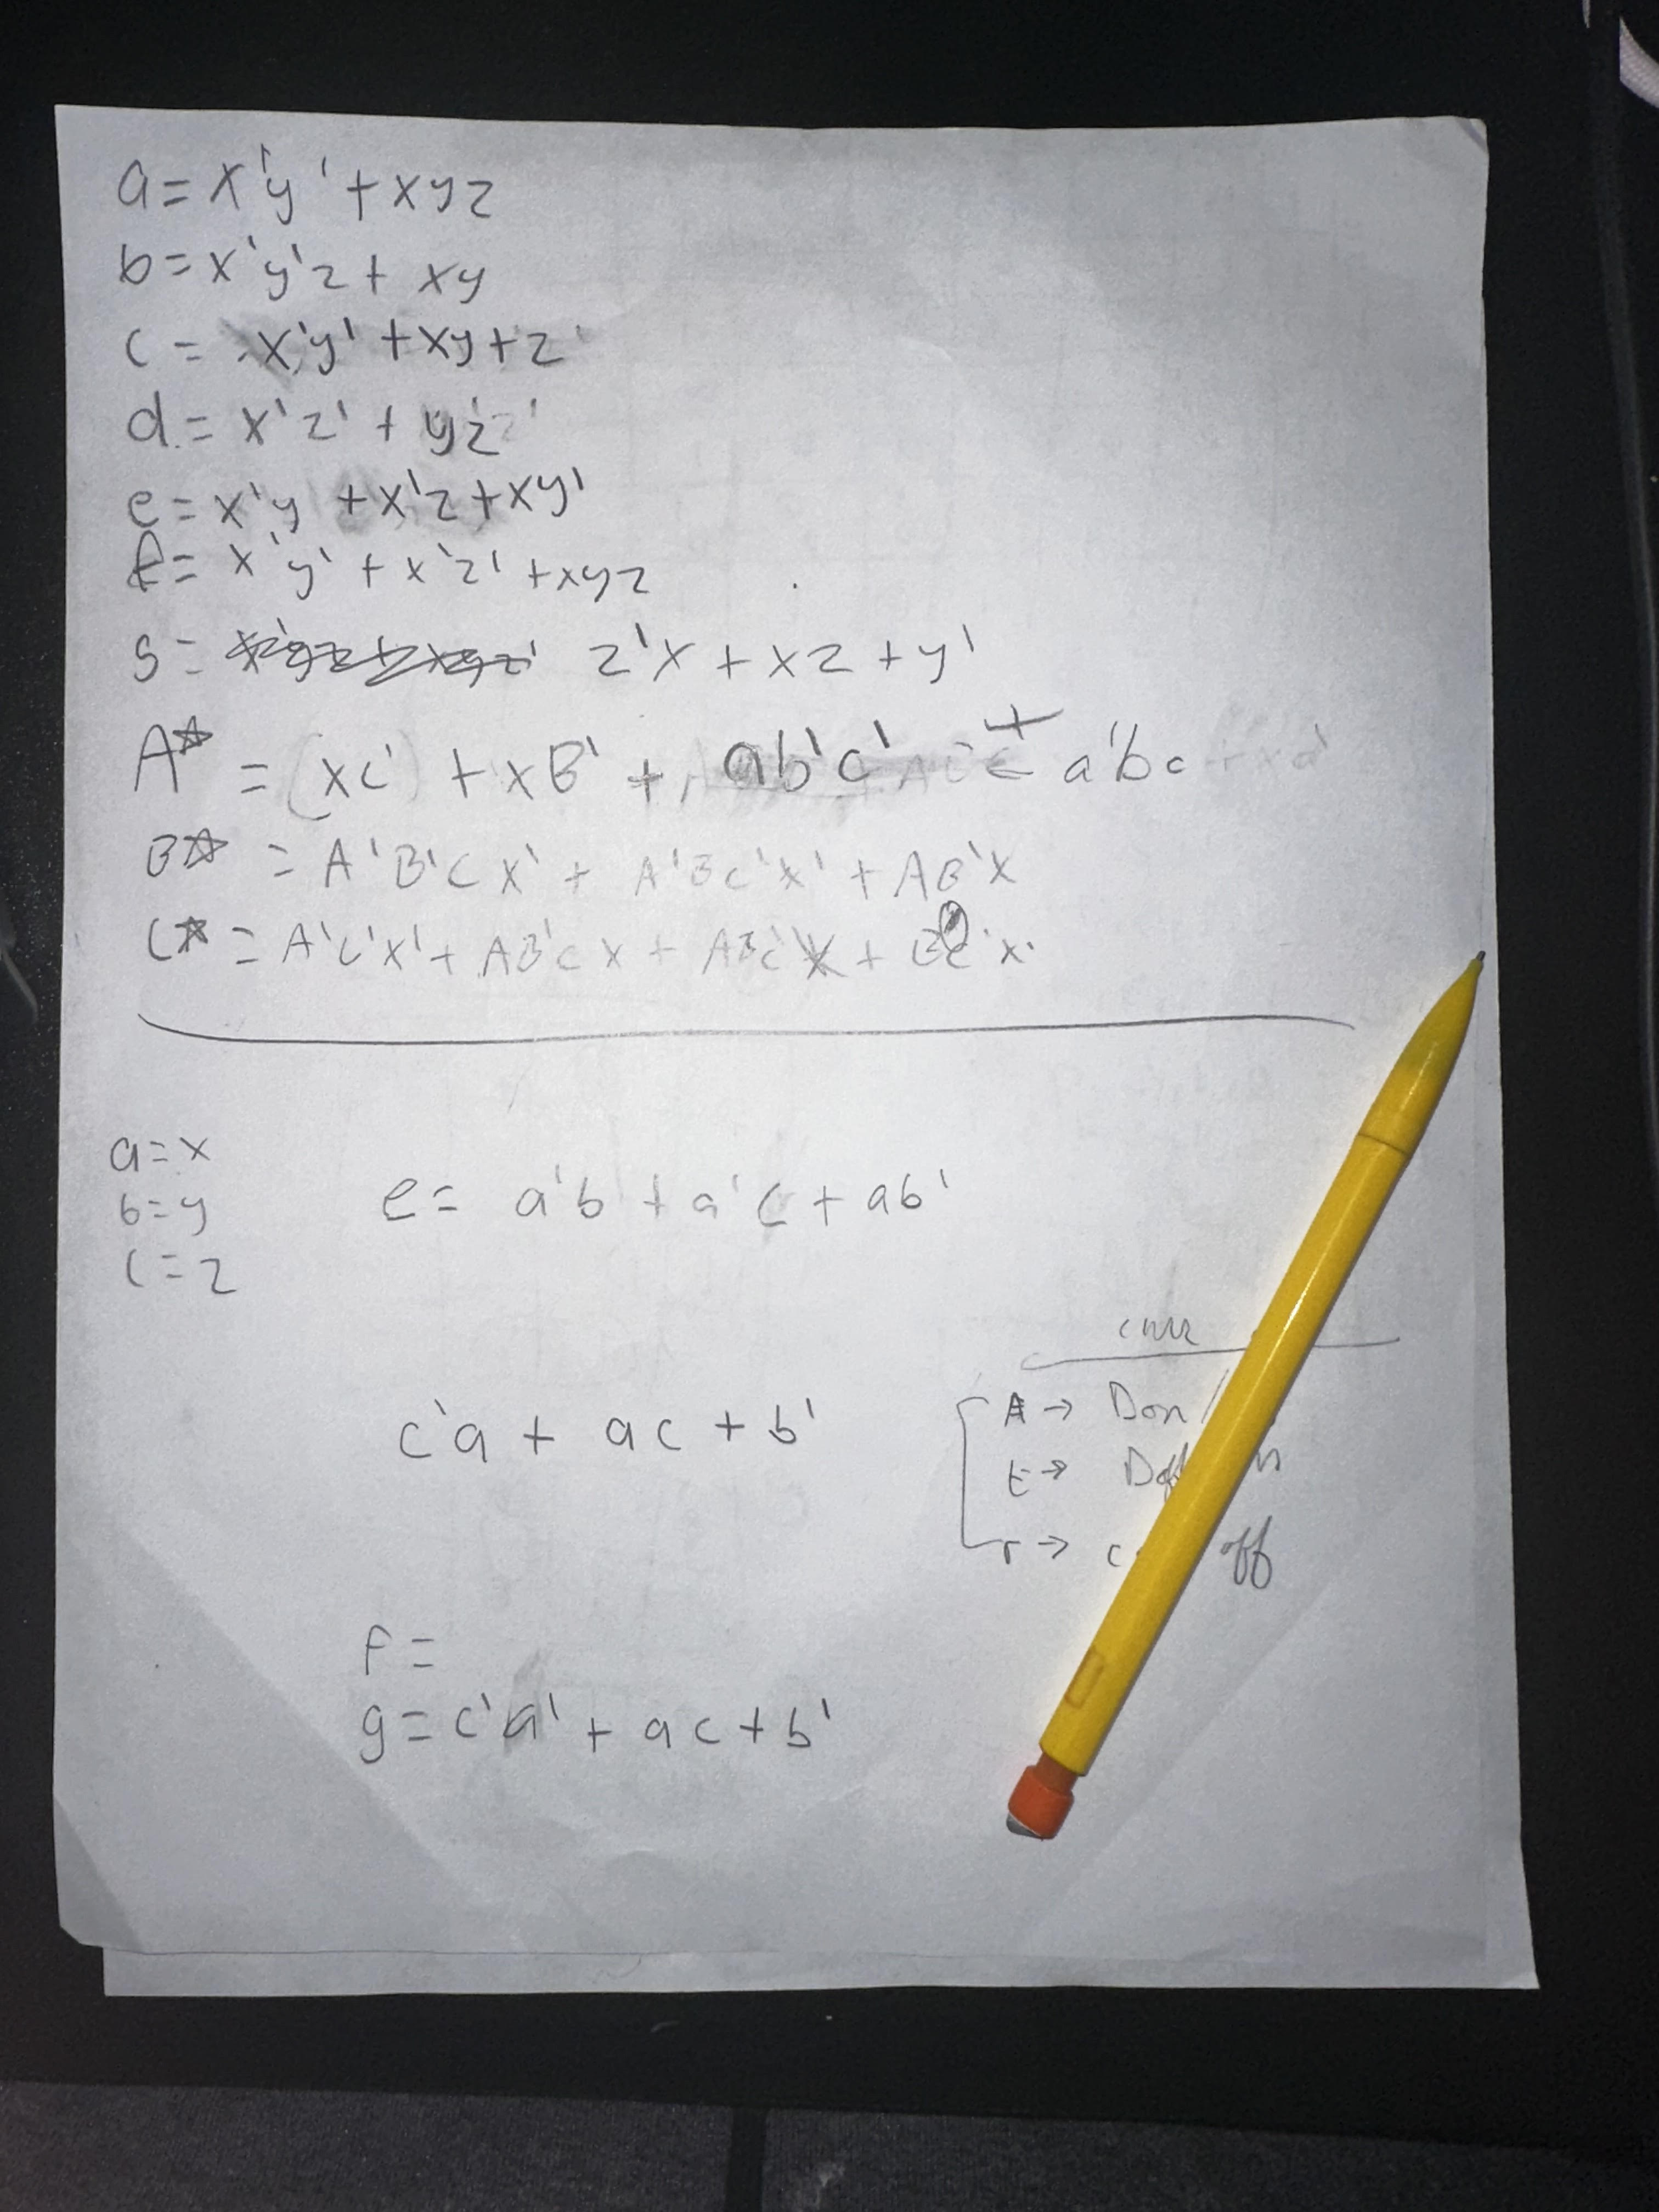 a = x'y' + xyz
b = x'y'z + xy
c = x'y' + xy + z'
d = x'z' + yz'
e = x'y + x'z + xy'
f = x'y' + x'z' + xyz
g = z'x + xz + y'
A☆ = (xc') + xB' + ab'c' + a'bc
B☆ = A'B'Cx' + A'BC'x' + AB'x
C☆ = A'C'x' + AB'Cx + ABC'x +
a = x
b = y
c = z
e = a'b + a'c + ab'
c'a + ac + b'
A →
t →
r → off
F =
g = c'a' + ac + b'